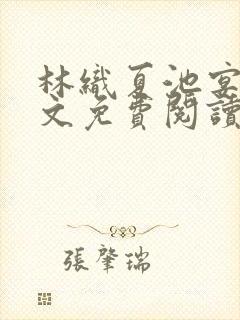 林織夏池宴
文免費閱讀
張肇瑞